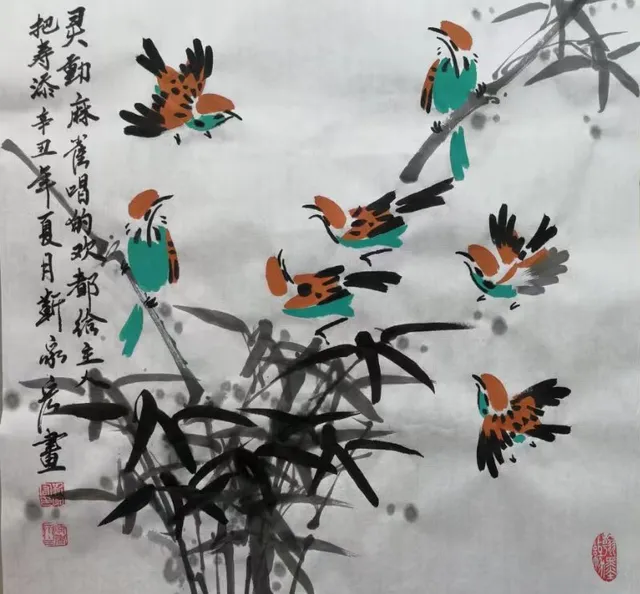 灵動麻雀唱的欢都给主人
把寿添辛丑年夏月靳家畫